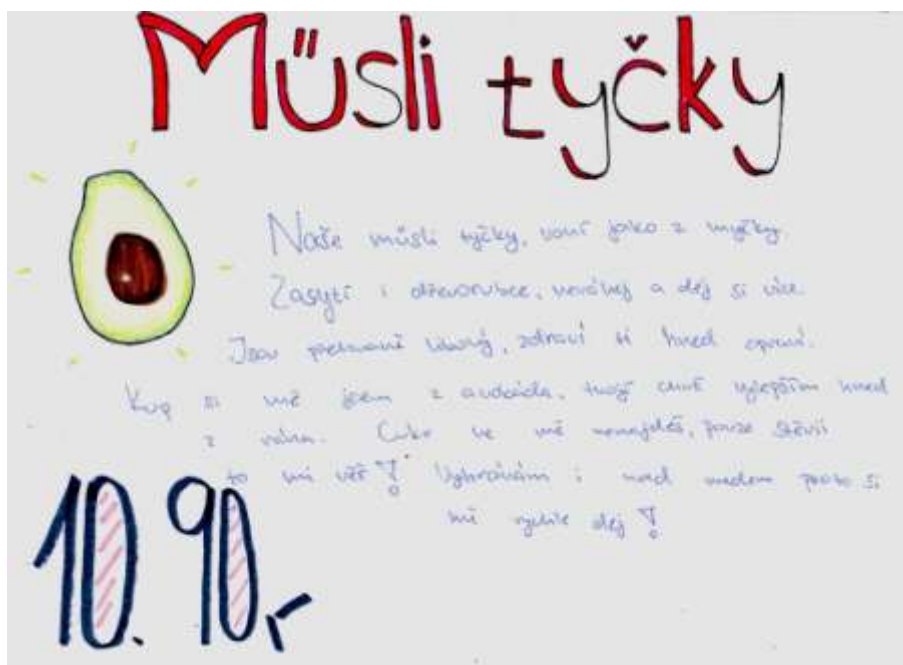 Müsli tyčky
Naše műsli tyčky, voní jako z myčky.
Zasytí i dřevorubce, neváhej a dej si více.
Jsou zdraví ti hned spraví.
Kup si mě jsem z avokáda, tvojí chuť vylepším hned
z rána. Cukr ve mě nenajdeš, pouze Stévii
to mi věř! Vyhrávám i nad medem proto si
mě rychle dej!
10.90,-